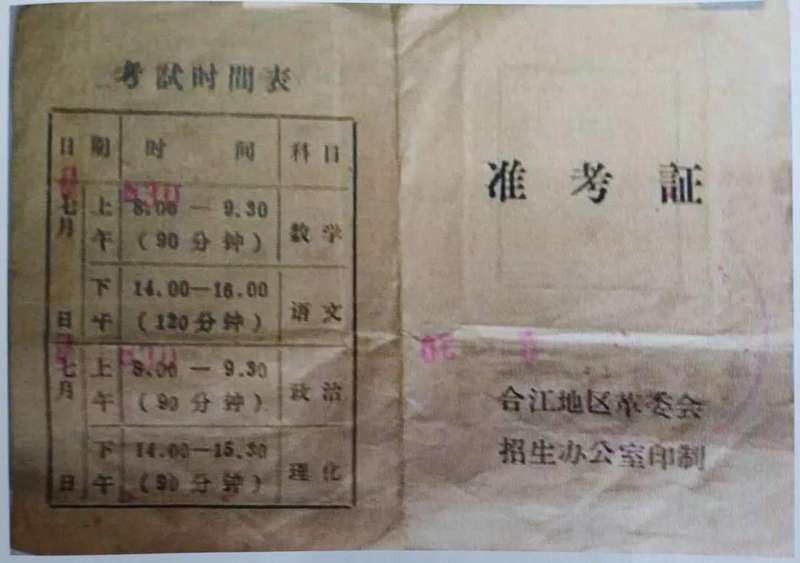 考試时間表
日期 时間 科目
七月 日 上午 8.00—9.30 (90分钟) 数学
下午 14.00—16.00 (120分钟) 语文
七月 日 上午 8.00—9.30 (90分钟) 政治
下午 14.00—15.30 (90分钟) 理化
准考証
合江地区革委会
招生办公室印制